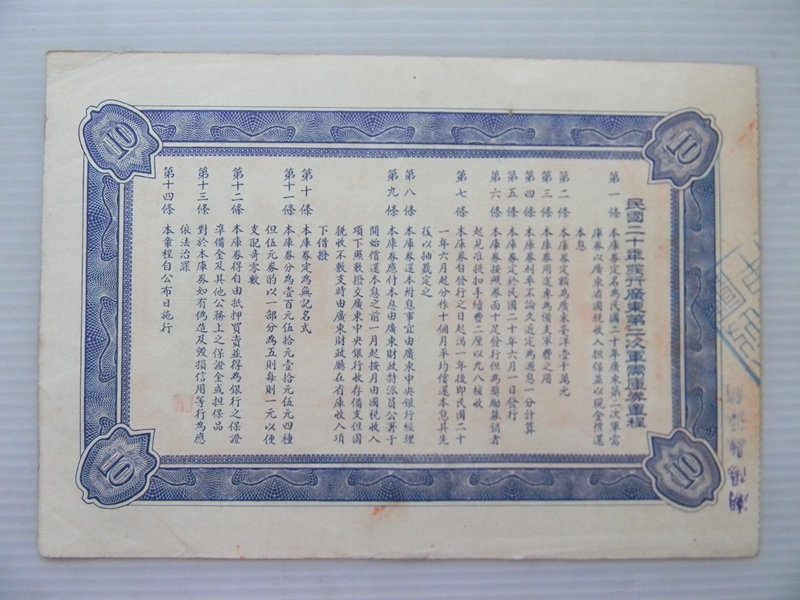 民國二十年發行廣東第二次軍需庫券章程
第一條 本庫券定名為民國二十年廣東第二次軍需
庫券以廣東省國稅收入担保並以現金償還
本息
第二條 本庫券定額為廣東毫洋壹千萬元
第三條 本庫券用途專為備支軍費之用
第四條 本庫券利率不論久近定為週息一分計算
第五條 本庫券定於民國二十年六月一日發行
第六條 本庫券按照券面十足發行但為獎勵募銷者
起見准提扣手續費二厘以九八核收
第七條 本庫券自發行之日起滿一年後由民國二十
一年六月起分作十個月平均償還本息其先
後以抽籤定之
第八條 本庫券還本附息事宜由廣東中央銀行經理
第九條 本庫券應付本息由廣東財政特派員公署于
開始償還本息之前一月起按月由國稅收入
項下照數撥交廣東中央銀行收存備支但國
稅收不敷支時由廣東財政廳在省庫收入項
下借撥
第十條 本庫券定為無記名式
第十一條 本庫券分為壹百元伍拾元壹拾元伍元四種
但伍元券酌以一部分為五則每則一元以便
支配奇零數
第十二條 本庫券得自由抵押買賣並得為銀行之保證
準備金及其他公務上之保證金或担保品
第十三條 對於本庫券如有偽造及毀損信用等行為應
依法治罪
第十四條 本章程自公布日施行
10
10
10
10